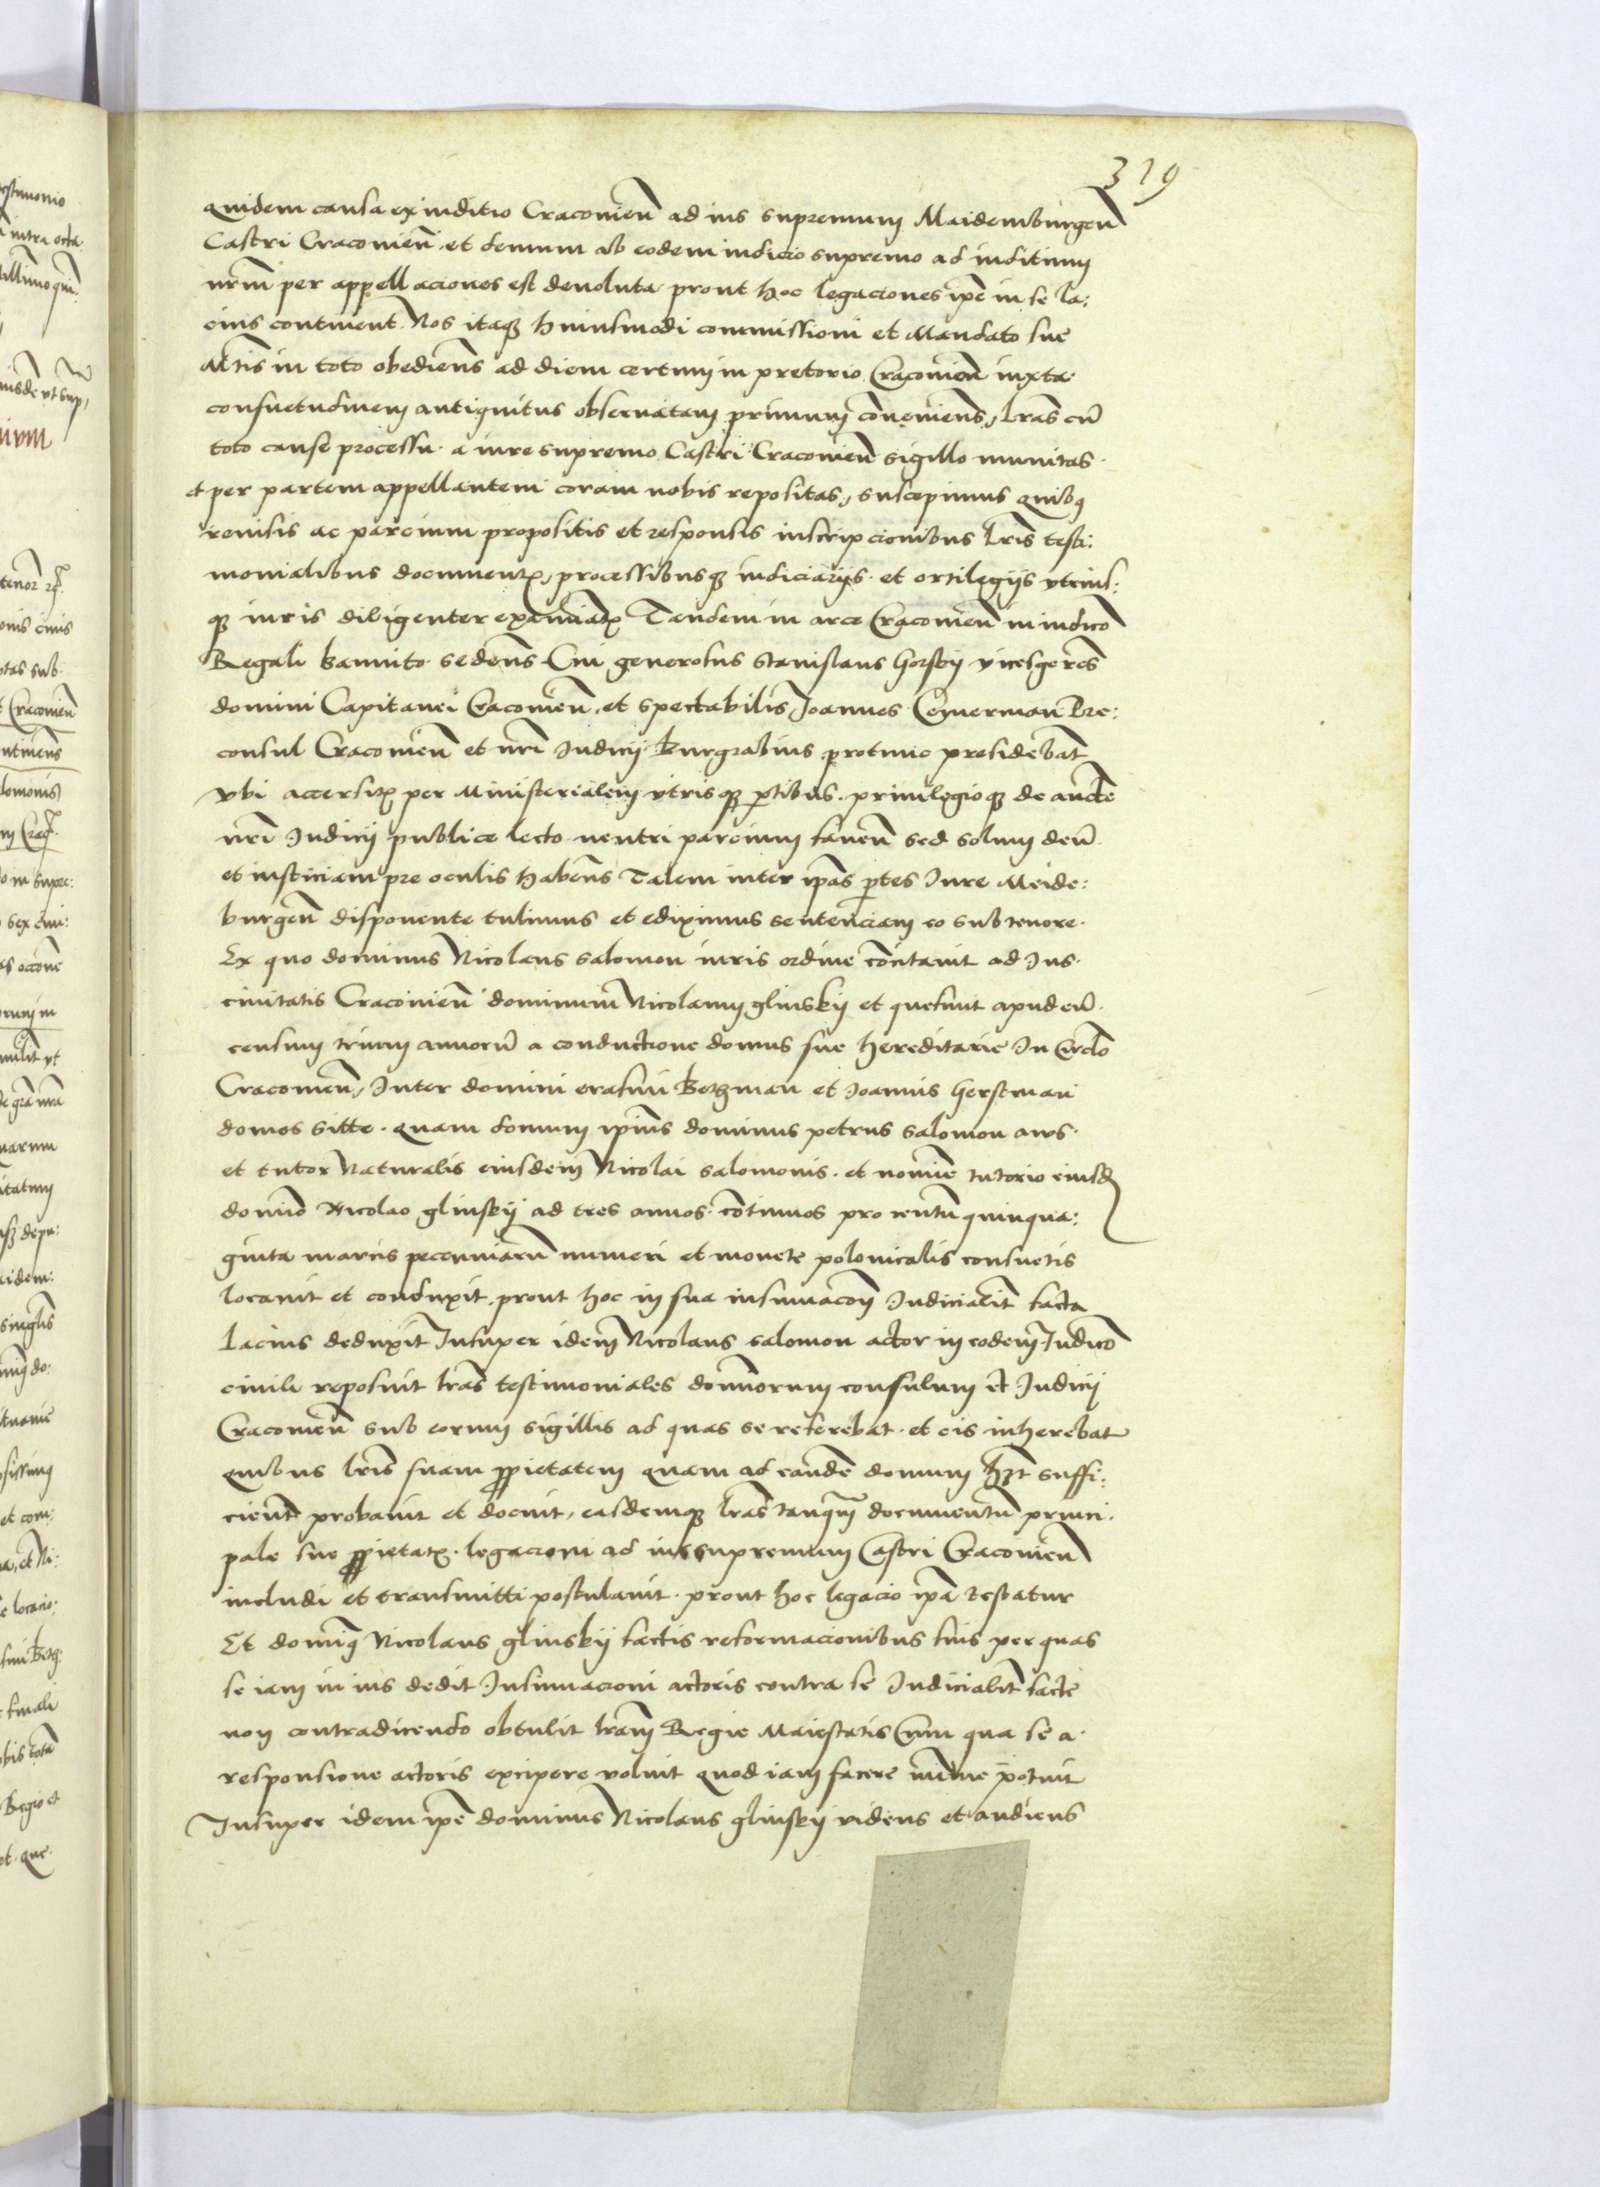 319
quidem causa ex iuditio Cracouien̄ ad ius supremum Maidemburgen̄
Castri Cracouien̄ et demum ab eodem iudicio supremo ad iuditium
nr̄m per appellaciones est deuoluta prout hoc legaciones ip̄e in se la:
cius continent. Nos itaq huiusmodi commissioni et Mandato sue
Mt̄is in toto obediens ad diem certum in pretorio Cracouien̄ iuxta
consuetudinem antiquitus obseruatam primum conueniens, l̄ras cū
toto cause processu a iure supremo Castri Cracouien̄ sigillo munitas
et per partem appellantem coram nobis repositas, suscepimus quibq
reuisis ac parcium propositis et responsis inscripcionibus l̄ris testi:
monialibus documentꝭ, processibusq iudiciarijs et ortilegijs vtrius:
q iuris diligenter examinatꝭ Tandem in arce Cracouien̄ in iudicō
Regali bannito sedens Cui generosus Stanislaus Gorskij vicesgerēs
domini Capitanei Cracouien̄ et spectabilis Joannes Czymerman Pre:
consul Cracouien̄ et nr̄i Judicij Burgrabius protunc presidebāt
vbi accersitꝭ per Ministerialem vtrisq ꝑtibus priuilegioq de auctē
nr̄i Judicij publice lecto neutri parcium fauen̄ sed solum deū
et iusticiam pre oculis habens Talem inter ip̄as ꝑtes Jure Meide:
burgen̄ disponente tulimus et ediximus sentenciam eo sub tenore
Ex quo dominus Nicolaus Salomon iuris ordine cōcitauit ad Jus
ciuitatis Cracouien̄ dominum Nicolaum glinskij et quesiuit apud eū
censum trium annorū a conductione domus sue hereditarie In Circlo
Cracouien̄, Inter domini erasmi Betzman et Joannis Gerstman
domos sitte quam domum ipsius dominus petrus Salomon aws
et tutor Naturalis eiusdem Nicolai Salomonis et nomine tutorio eiusd
domino Nicolao glinskij ad tres annos cōtinuos pro centum quinqua:
ginta marcis pecuniarū numeri et monete polonicalis consuetis
locauit et conduxit, prout hoc in sua insinuacōn Judicialit̄ facta
Lacius deduxit Insuper idem Nicolaus Salomon actor in eodem Judicō
ciuili reposuit l̄ras testimoniales dominorum consulum et Judicij
Cracouien̄ sub eorum sigillis ad quas se referebat et eis inherebat
quibus l̄ris suam ꝓprietatem quam ad eandē domum hꝫt suffi:
cient̄ probauit et docuit, easdemq l̄ras tanq̄m documentum princi:
pale sue ꝓprietatꝭ legacioni ad ius supremum Castri Cracouien̄
includi et transmitti postulauit prout hoc legacio ip̄a testatur
Et dominq Nicolaus glinskij factis reformacionibus suis per quas
se iam in ius dedit Insinuacioni actoris contra se Judicialit̄ facte
non contradicendo obtulit l̄ram Regie Maiestatis Cum qua se a
responsione actoris excipere voluit quod iam facere minime potuit
Insuper idem ip̄e dominus Nicolaus glinskij videns et audiens